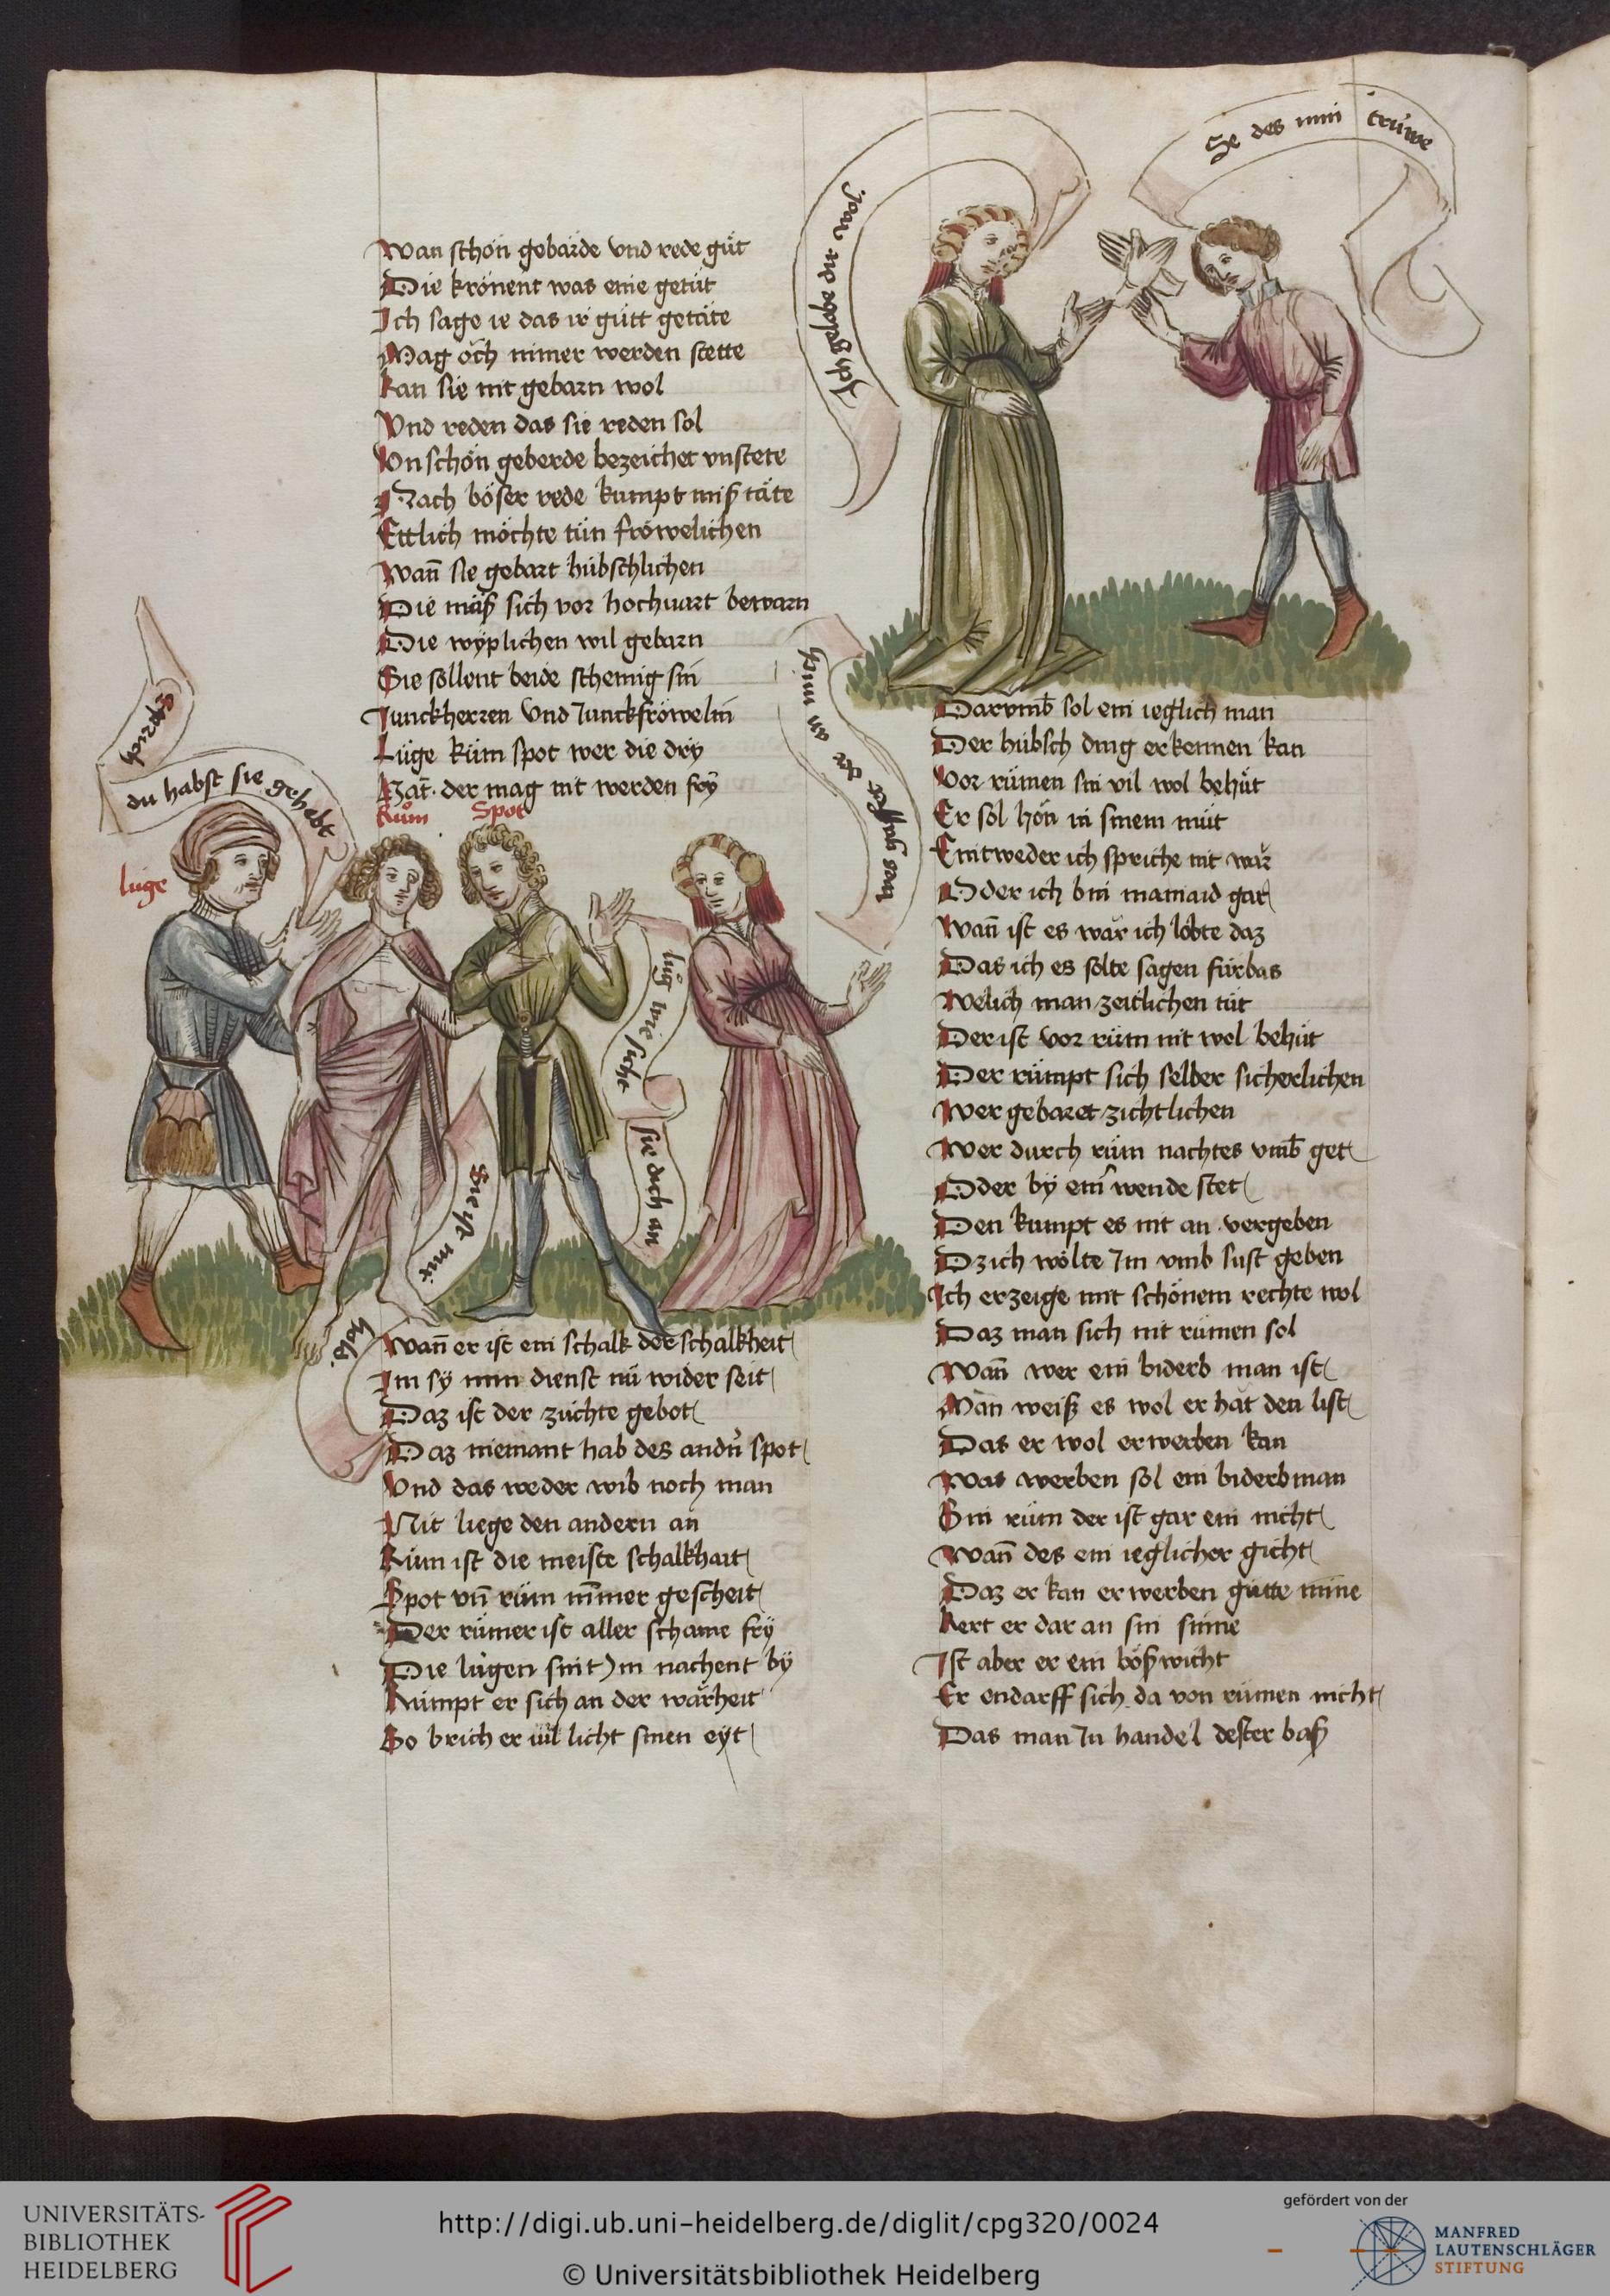 Wan schön gebärde vnd rede gůt
Die krönent was eine getůt
Ich sage ie das ir gůtt getäte
Mag öch nimer werden stette
kan sie nit gebarn wol
Vnd reden das sie reden sol
Vnschön geberde bezeichet vnstete
Nach böser rede kumpt miß täte
Ettlich möchte tůn fröwelichen
Wañ sie gebart hübschlichen
Die můß sich vor hochuart bewarn
Die wyplichen wil gebarn
Sie söllent beide schemig sin
Junckherren Vnd Junckfröwelin
Lüge Rům spot wer die dry
Hät der mag nit werden fry
Rům Spot
luge
sprich
du habst sie gehebt
lůg wie sich
sie dich an
Sie ist mir
hold
Wañ er ist ein schalk der schalkheit
Im sÿ min dienst nů wider seit
Daz ist der züchte gebot
Daz niemant hab des andn̄ spot
Vnd das weder wib noch man
Nit liege den andern an
Rům ist die meiste schalkhait
Spot vñ rům nim̄er gescheit
Der růmer ist aller schame frÿ
Die lůgen sint Jm nachent bÿ
Růmpt er sich an der warheit
So brich er licht sinen eÿt
Ich gelobe dir wol
Se des min trüwe
wes er an mich
Darvmb sol ein ieglich man
Der hübsch ding erkennen kan
Vor růmen sin vil wol behůt
Er sol hön in sinem můt
Eintweder ich spriche nit war
Oder ich bin mainaid gar
Wañ ist es war ich lobte daz
Das ich es solte sagen fürbas
Welich man zeitlichen tůt
Der ist vor rům nit wol behůt
Der růmpt sich selber sicherlichen
Wer gebaret zichtlichen
Wer durch rům nachtes vmb get
Oder bÿ ein̄ wende stet
Den kumpt es nit an vergeben
Dz ich wölte Jm vmb sust geben
Ich erzeige mit schönem rechte wol
Daz man sich nit růmen sol
Wañ wer ein biderb man ist
Man weiß es wol er hat den list
Das er wol erwerben kan
Was werben sol ein biderbman
Sin rům der ist gar ein nicht
Wañ des ein ieglicher gicht
Daz er kan erwerben gůtte mīne
kert er dar an sin sinne
Ist aber er ein bößwicht
Er endarff sich da von růmen nicht
Das man Jn handel dester baß
UNIVERSITÄTS-
BIBLIOTHEK
HEIDELBERG
http://digi.ub.uni-heidelberg.de/diglit/cpg320/0024
© Universitätsbibliothek Heidelberg
gefördert von der
MANFRED
LAUTENSCHLÄGER
STIFTUNG